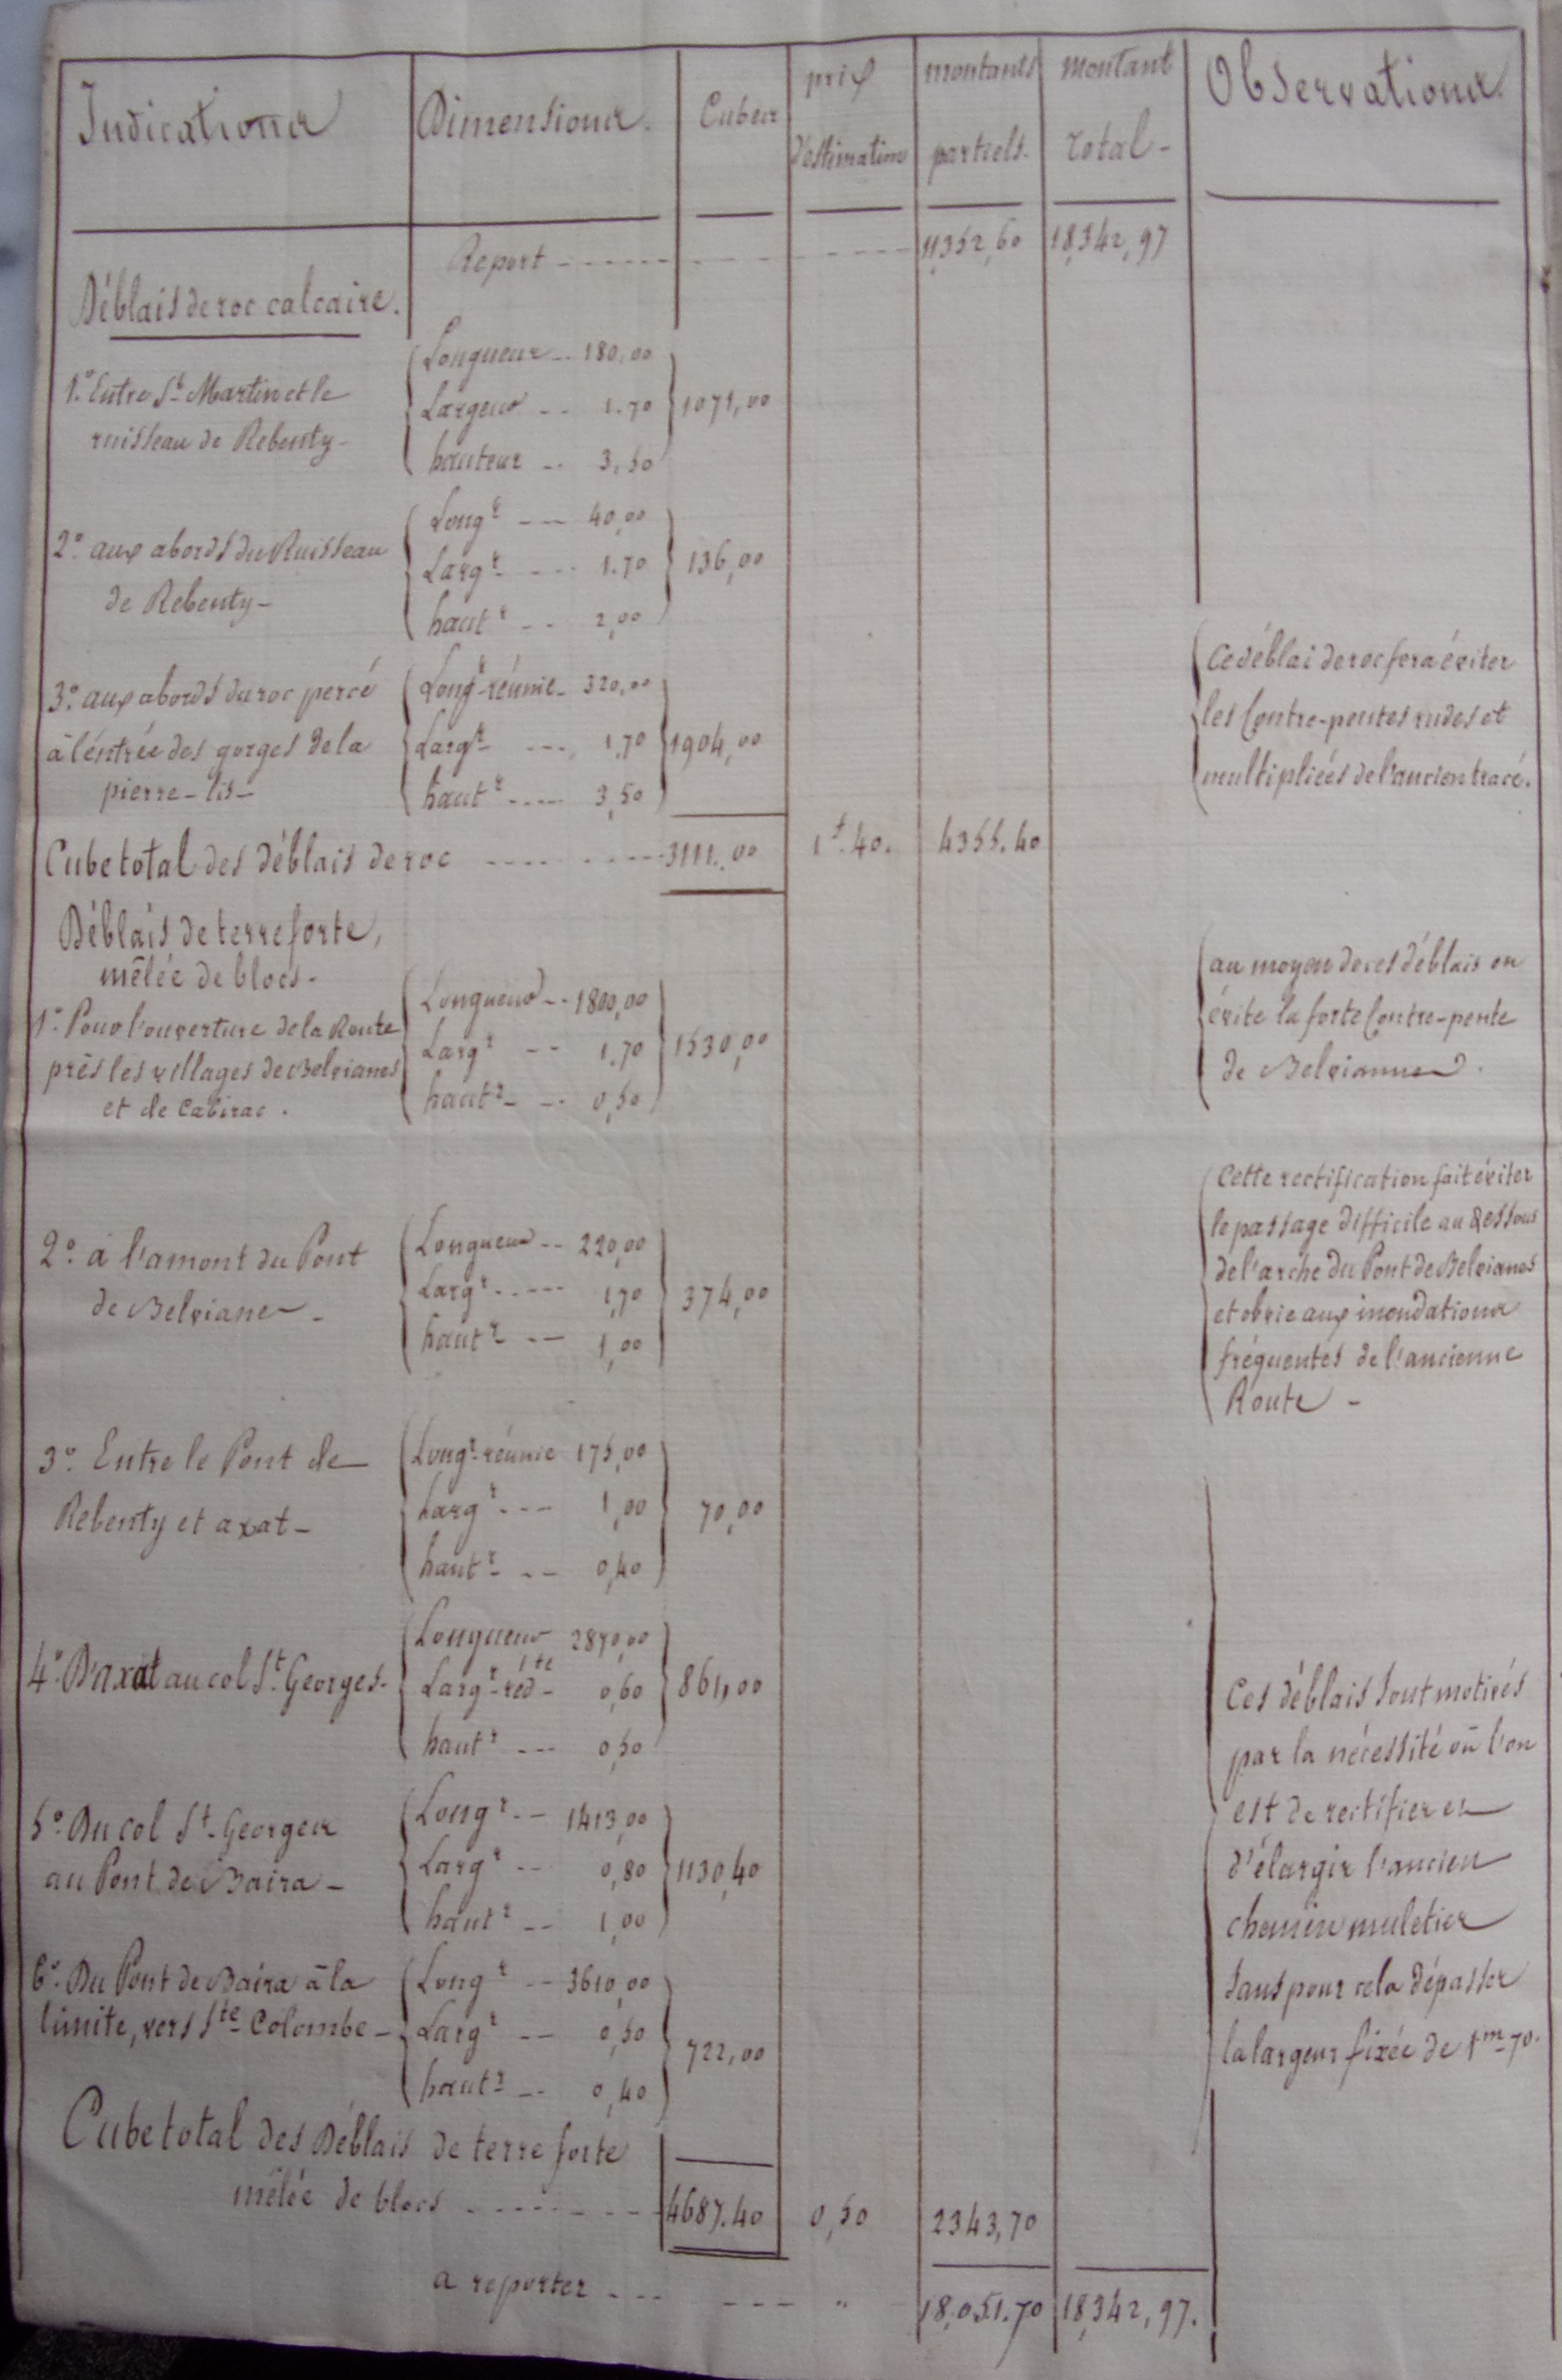 Indications Dimensions. Cubes prix d'estimation montants partiels. montant total - Observations.
Report 11,352,60 18,342,97
Déblais de roc calcaire.
1.° Entre St. Martin et le
ruisseau de Rebenty -
Longueur -- 180,00
Largeur -- 1.70
hauteur -- 3,50
1071,00
2.° aux abords du Ruisseau
de Rebenty -
Longr. --- 40,00
Largr. --- 1.70
hautr. -- 2,00
136,00
3.° aux abords du roc percé
à l'éntrée des gorges de la
pierre-lis -
Longr. réunie - 320,00
Largr. --- 1,70
hautr. ---- 3,50
1904,00
Ce déblai de roc fera éviter
les Contre-pentes rudes et
multipliées de l'ancien tracé.
Cube total des déblais de roc ---- 3111.00 1f.40. 4355.40
Déblais de terre forte,
mêlée de blocs -
1.° Pour l'ouverture de la Route
près les villages de Belvianes
et de Cabirac.
Longueur -- 1800,00
Largr. -- 1.70
hautr. -- 0,50
1530,00
au moyen de ces déblais on
évite la forte Contre-pente
de Belvianes.
2.° à l'amont du Pont
de Belvianes -
Longueur -- 220,00
Largr. ---- 1,70
hautr. -- 1,00
374,00
Cette rectification fait éviter
le passage difficile au dessous
de l'arche du Pont de Belvianes
et obvie aux inondations
fréquentes de l'ancienne
Route -
3.° Entre le Pont de
Rebenty et axat -
Longr. réunie 175,00
Largr. --- 1,00
hautr. --- 0,40
70,00
4.° D'axat au col St. Georges -
Longueur 2870,00
Largr. rédte - 0,60
hautr. --- 0,50
861,00
5.° Du col St. Georges
au Pont de Baira -
Longr. -- 1413,00
Largr. -- 0,80
hautr. -- 1,00
1130,40
6.° Du Pont de Baira à la
limite, vers Ste. Colombe -
Longr. -- 3610,00
Largr. -- 0,50
hautr. -- 0,40
722,00
Ces déblais sont motivés
par la nécessité où l'on
est de rectifier et
d'élargir l'ancien
chemin muletier
sans pour cela dépasser
la largeur fixée de 1m 70.
Cube total des Déblais de terre forte
mêlée de blocs ------ 4687.40 0,50 2343,70
a reporter --- --- " 18,051.70 18,342,97.